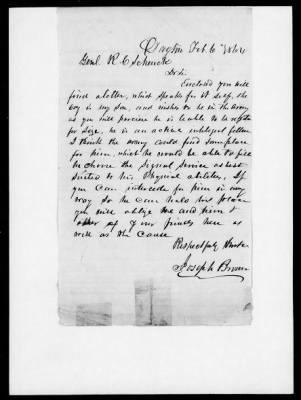 Dayton Feb 6
Genl. R C Schenck
Dr Sir
Enclosed you will
find a letter, which speaks for it self, the
boy is my son, and wishes to be in the army
as you will perceive he is liable to
for size, he is an active intelligent fellow
I think the army could find some place
for him, which he would be able to fill
he chose the Signal Service as best
suited to his Physical abilities, If
you can intercede for him in any
way so he can
you will oblige me and him &
other of your friends here as
well as the Cause
Respectfully
Joseph Brown